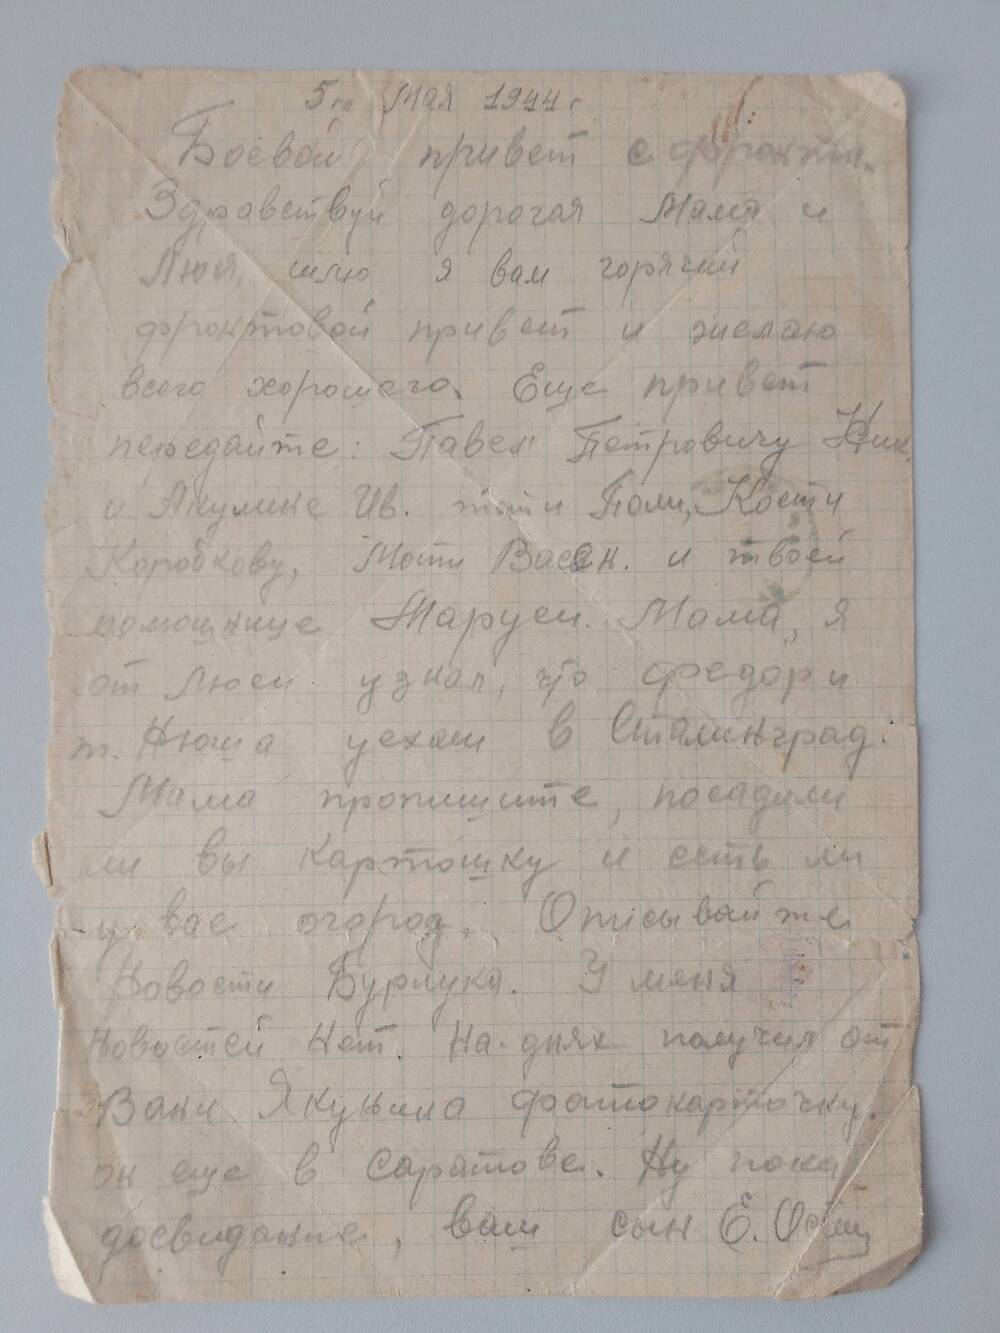 5го Мая 1944 г
Боевой привет с фронта.
Здравствуй дорогая Мама и
Люся, шлю я вам горячий
фронтовой привет и желаю
всего хорошего. Еще привет
передайте: Павел Петровичу Ник.
и Акулине Ив. тёти Поли, Кости
Коробкову, Моти Васен. и твоей
помощнице Маруси. Мама, я
от Люси узнал, что Федор и
т. Нюша уехали в Сталинград.
Мама пропишите, посадили
ли вы картошку и есть ли
у вас огород. Описывайте
Новости Бурлука. У меня
новостей нет. На-днях получил от
Вани Якунина фотокарточку.
он еще в Саратове. Ну пока
досвидание, ваш сын Е.